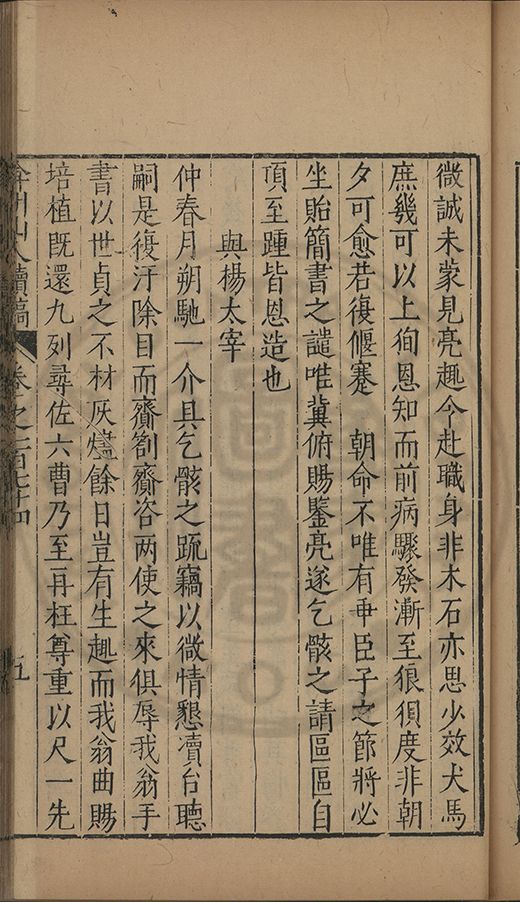 微誠未蒙見亮趣令赴職身非木石亦思少效犬馬
庶幾可以上徇恩知而前病驟發漸至狼狽度非朝
夕可愈若復偃蹇 朝命不唯有乖臣子之節將必
坐貽簡書之譴唯冀俯賜鑒亮遂乞骸之請區區自
頂至踵皆恩造也
與楊太宰
仲春月朔馳一介具乞骸之疏竊以微情懇瀆台聽
嗣是復汙除目而齎劄齎咨两使之來俱辱我翁手
書以世貞之不材灰燼餘日豈有生趣而我翁曲賜
培植既還九列尋佐六曹乃至再枉尊重以尺一先
弇州山人續稿 卷之一百七十四 五